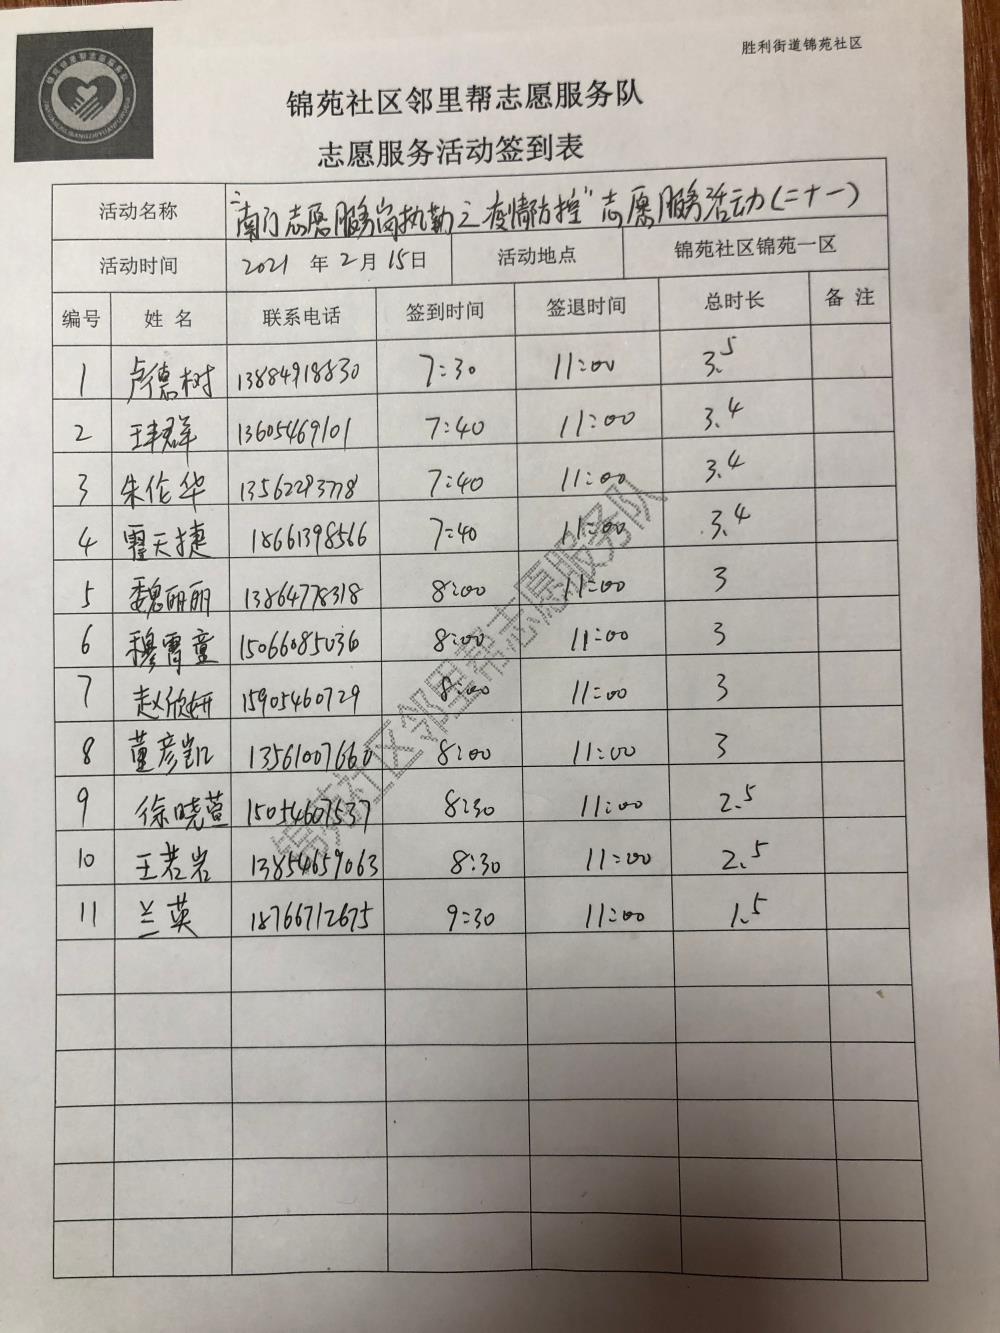 胜利街道锦苑社区
锦苑社区邻里帮志愿服务队
志愿服务活动签到表
活动名称 "南门志愿服务岗执勤之疫情防控"志愿服务活动(二十一)
活动时间 2021 年 2 月 15 日 活动地点 锦苑社区锦苑一区
编号 姓名 联系电话 签到时间 签退时间 总时长 备注
1 卢德树 13884918830 7:30 11:00 3.5
2 王丰群 13605469101 7:40 11:00 3.4
3 朱伦华 13562293778 7:40 11:00 3.4
4 霍天捷 18661398566 7:40 11:00 3.4
5 魏丽丽 13864778318 8:00 11:00 3
6 穆霄童 15066085036 8:00 11:00 3
7 赵欣妍 15905460729 8:00 11:00 3
8 董彦凯 13561007660 8:00 11:00 3
9 徐晓萱 15054607537 8:30 11:00 2.5
10 王若岩 13854659063 8:30 11:00 2.5
11 兰英 18766712675 9:30 11:00 1.5
锦苑社区邻里帮志愿服务队